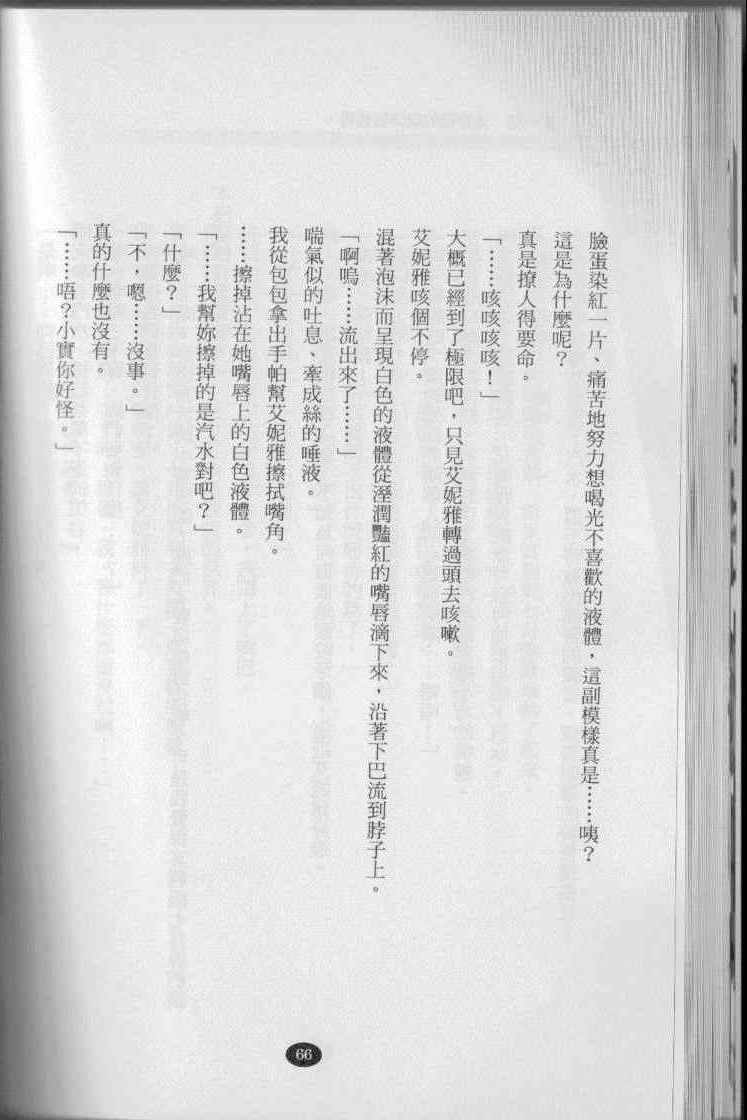 臉蛋染紅一片、痛苦地努力想喝光不喜歡的液體，這副模樣真是……咦？
這是為什麼呢？
真是撩人得要命。
「……咳咳咳咳！」
大概已經到了極限吧，只見艾妮雅轉過頭去咳嗽。
艾妮雅咳個不停。
混著泡沫而呈現白色的液體從溼潤豔紅的嘴唇滴下來，沿著下巴流到脖子上。
「啊嗚……流出來了……」
喘氣似的吐息、牽成絲的唾液。
我從包包拿出手帕幫艾妮雅擦拭嘴角。
……擦掉沾在她嘴唇上的白色液體。
「……我幫妳擦掉的是汽水對吧？」
「什麼？」
「不，嗯……沒事。」
真的什麼也沒有。
「……唔？小實你好怪。」
66